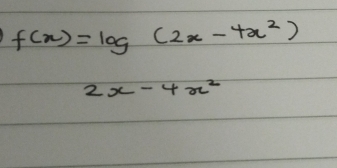 ) f(x) = log (2x - 4x²)
2x - 4x²